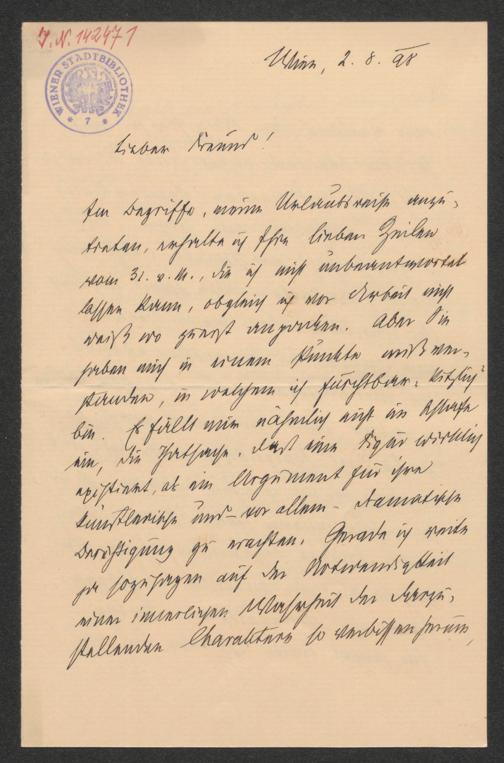 J.N. 142471
WIENER STADTBIBLIOTHEK
7
Wien, 2. 8. 98
Lieber Freund!
Im Begriffe, meine Urlaubsreise anzu-
treten, erhalte ich Ihre lieben Zeilen
vom 31. v. M., die ich nicht unbeantwortet
lassen kann, obgleich ich vor Arbeit nicht
weiß wo zuerst anpacken. Aber Sie
haben mich in einem Punkte mißver-
standen, in welchem ich furchtbar "kitzlich"
bin. Es fällt mir nähmlich nicht im Schlafe
ein, die Thatsache, daß eine Figur wirklich
existiert, als ein Argument für ihre
künstlerische und - vor allem - dramatische
Berechtigung zu erachten. Gerade ich reite
ja sozusagen auf der Notwendigkeit
einer innerlichen Wahrheit der darzu-
stellenden Charaktere so verbissen herum,